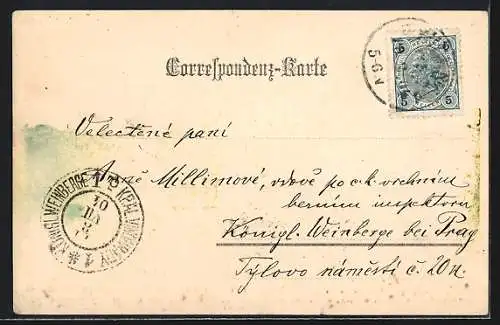 Correspondenz-Karte
5-6 N
5 5
5 5
Velectěné paní
Anně Millimové, vdově po c.k. vrchním
berním inspektoru
Königl. Weinberge bei Prag
Tylovo náměstí č. 20n.
KÖNIGL. WEINBERGE 1
KRÁL. VINOHRADY 1
10
VII